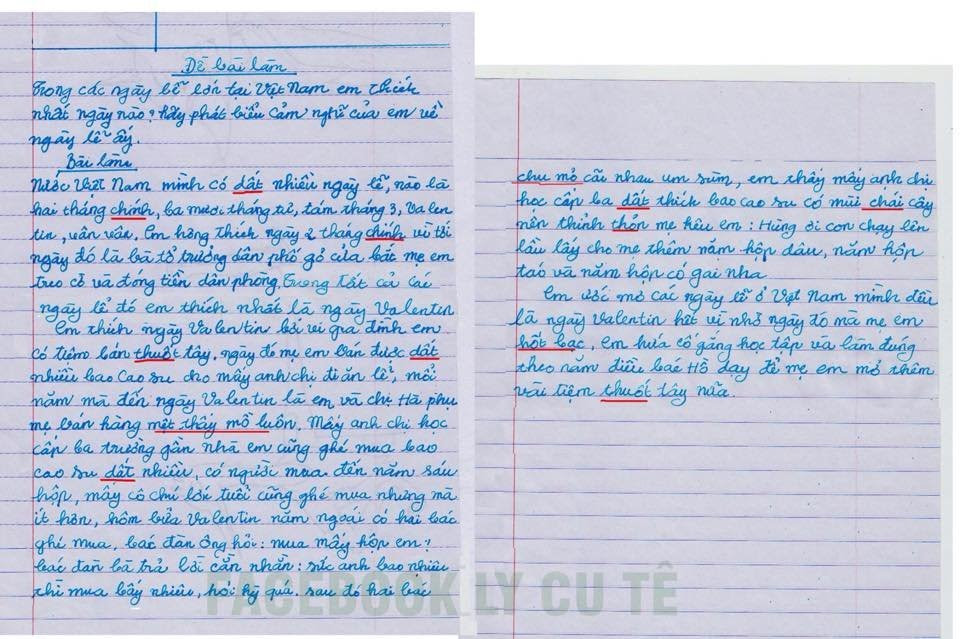 Đề bài làm
Trong các ngày lễ lớn tại Việt Nam em thích
nhất ngày nào? Hãy phát biểu cảm nghĩ của em về
ngày lễ ấy.
Bài làm
Nước Việt Nam mình có dất nhiều ngày lễ, nào là
hai tháng chính, ba mươi tháng tư, tám tháng 3, Valen
tin, vân vân. Em hông thích ngày 2 tháng chính vì tới
ngày đó là bà tổ trưởng dân phố gỏ cửa bắt mẹ em
treo cờ và đóng tiền dân phòng. Trong tất cả các
ngày lể đó em thích nhất là ngày Valentin
Em thích ngày Valentin bởi vì gia đình em
có tiệm bán thuốt tây, ngày đó mẹ em bán được dất
nhiều bao cao su cho mấy anh chị đi ăn lể, mổi
năm mà đến ngày Valentin là em và chị Hà phụ
mẹ bán hàng mệt thấy mồ luôn. Mấy anh chị học
cấp ba trường gần nhà em cũng ghé mua bao
cao su dất nhiều, có người mua đến năm sáu
hộp, mấy cô chú lớn tuổi cũng ghé mua nhưng mà
ít hơn, hôm bửa Valentin năm ngoái có hai bác
ghé mua, bác đàn ông hỏi: mua mấy hộp em?
bác đàn bà trả lời cằn nhằn: sức anh bao nhiêu
thì mua bấy nhiêu, hỏi kỳ quá. sau đó hai bác
chu mỏ cãi nhau um sùm, em thấy mấy anh chị
học cấp ba dất thích bao cao su có mùi chái cây
nên thỉnh thỏn mẹ kêu em: Hùng ơi con chạy lên
lầu lấy cho mẹ thêm năm hộp dâu, năm hộp
táo và năm hộp có gai nha
Em ước mơ các ngày lễ ở Việt Nam mình đều
là ngày Valentin hết vì nhờ ngày đó mà mẹ em
hốt bạc, em hứa cố gắng học tập và làm đúng
theo năm điều bác Hồ dạy để mẹ em mở thêm
vài tiệm thuốt tây nữa.
FACEBOOK LY CU TÊ